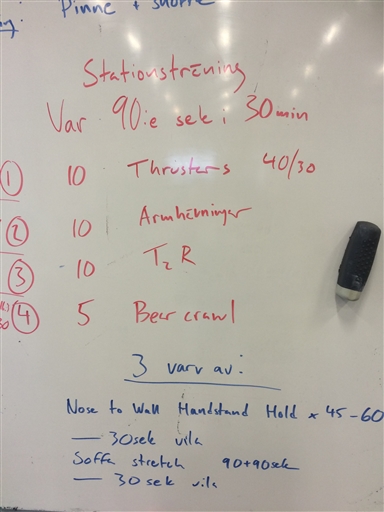 Pinne + snöre
Stationsträning
Var 90:e sek i 30 min
1 10 Thrusters 40/30
2 10 Armhävningar
3 10 T2R
4 5 Bear crawl
3 varv av:
Nose to Wall Handstand Hold x 45-60
— 30sek vila
Soffa stretch 90+90sek
— 30 sek vila